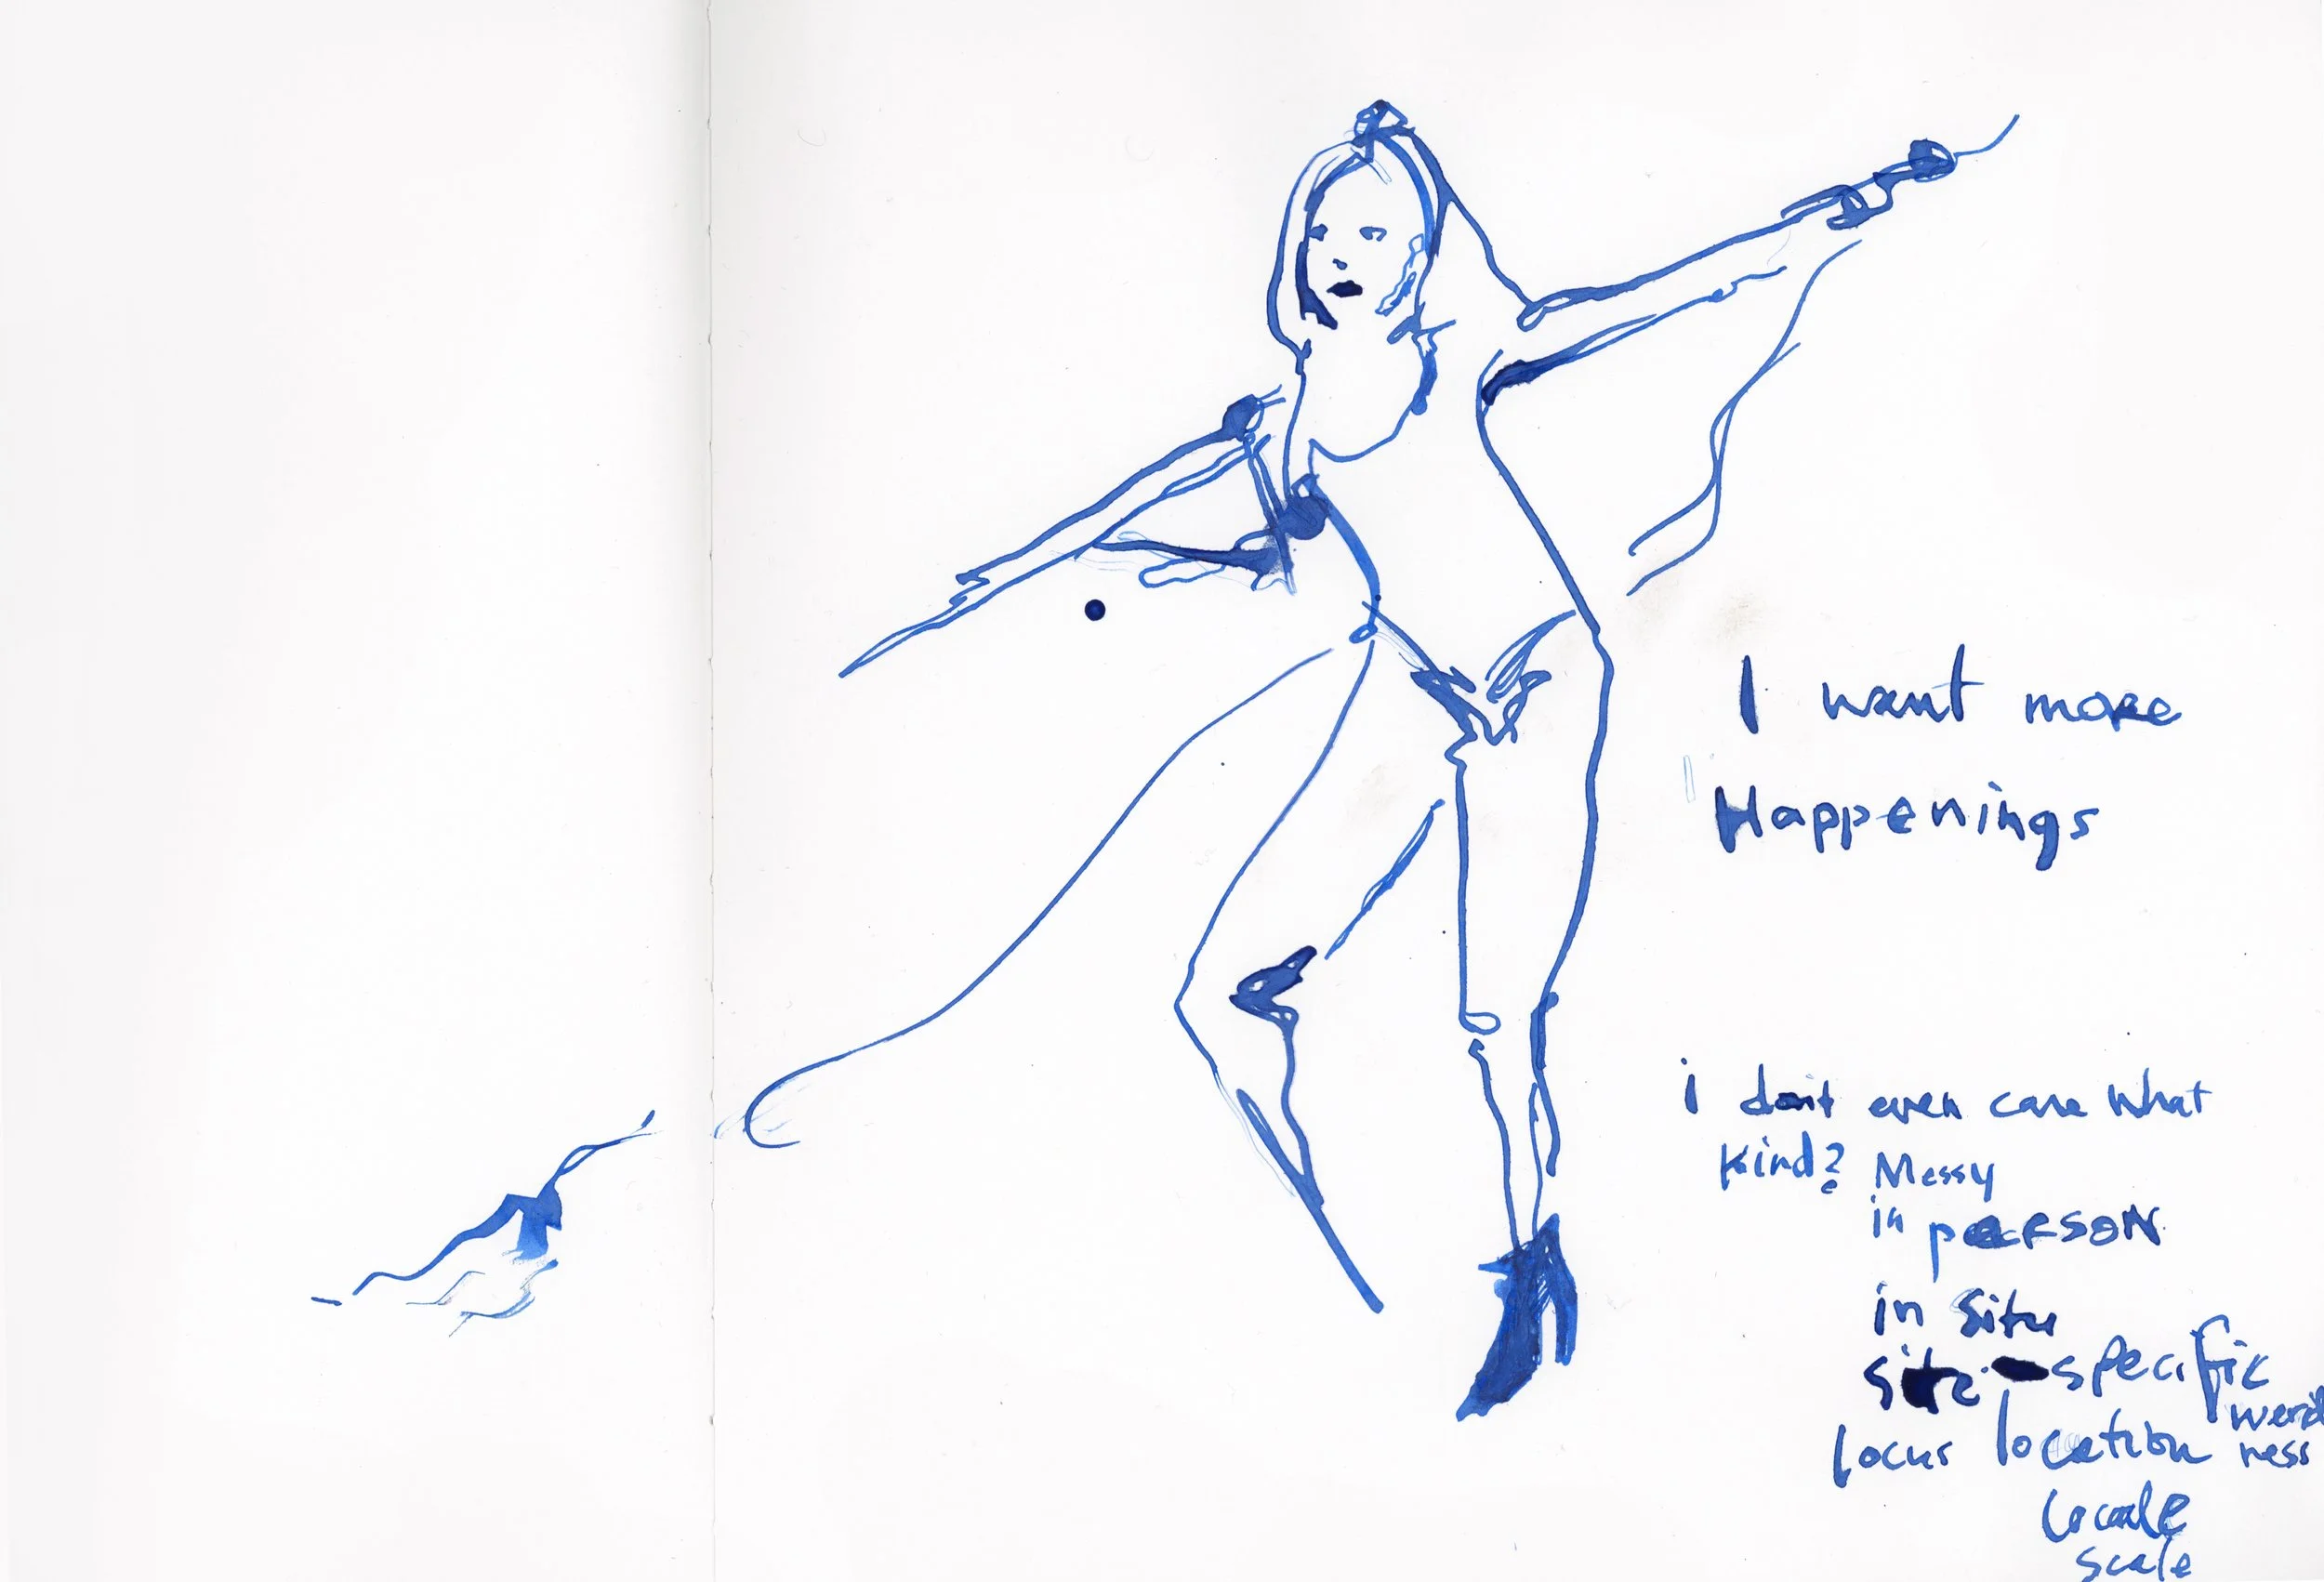 I want more
Happenings
i don't even care what
kind? Messy
in person
in situ
site-specific
weird
locus location ness
locale
scale